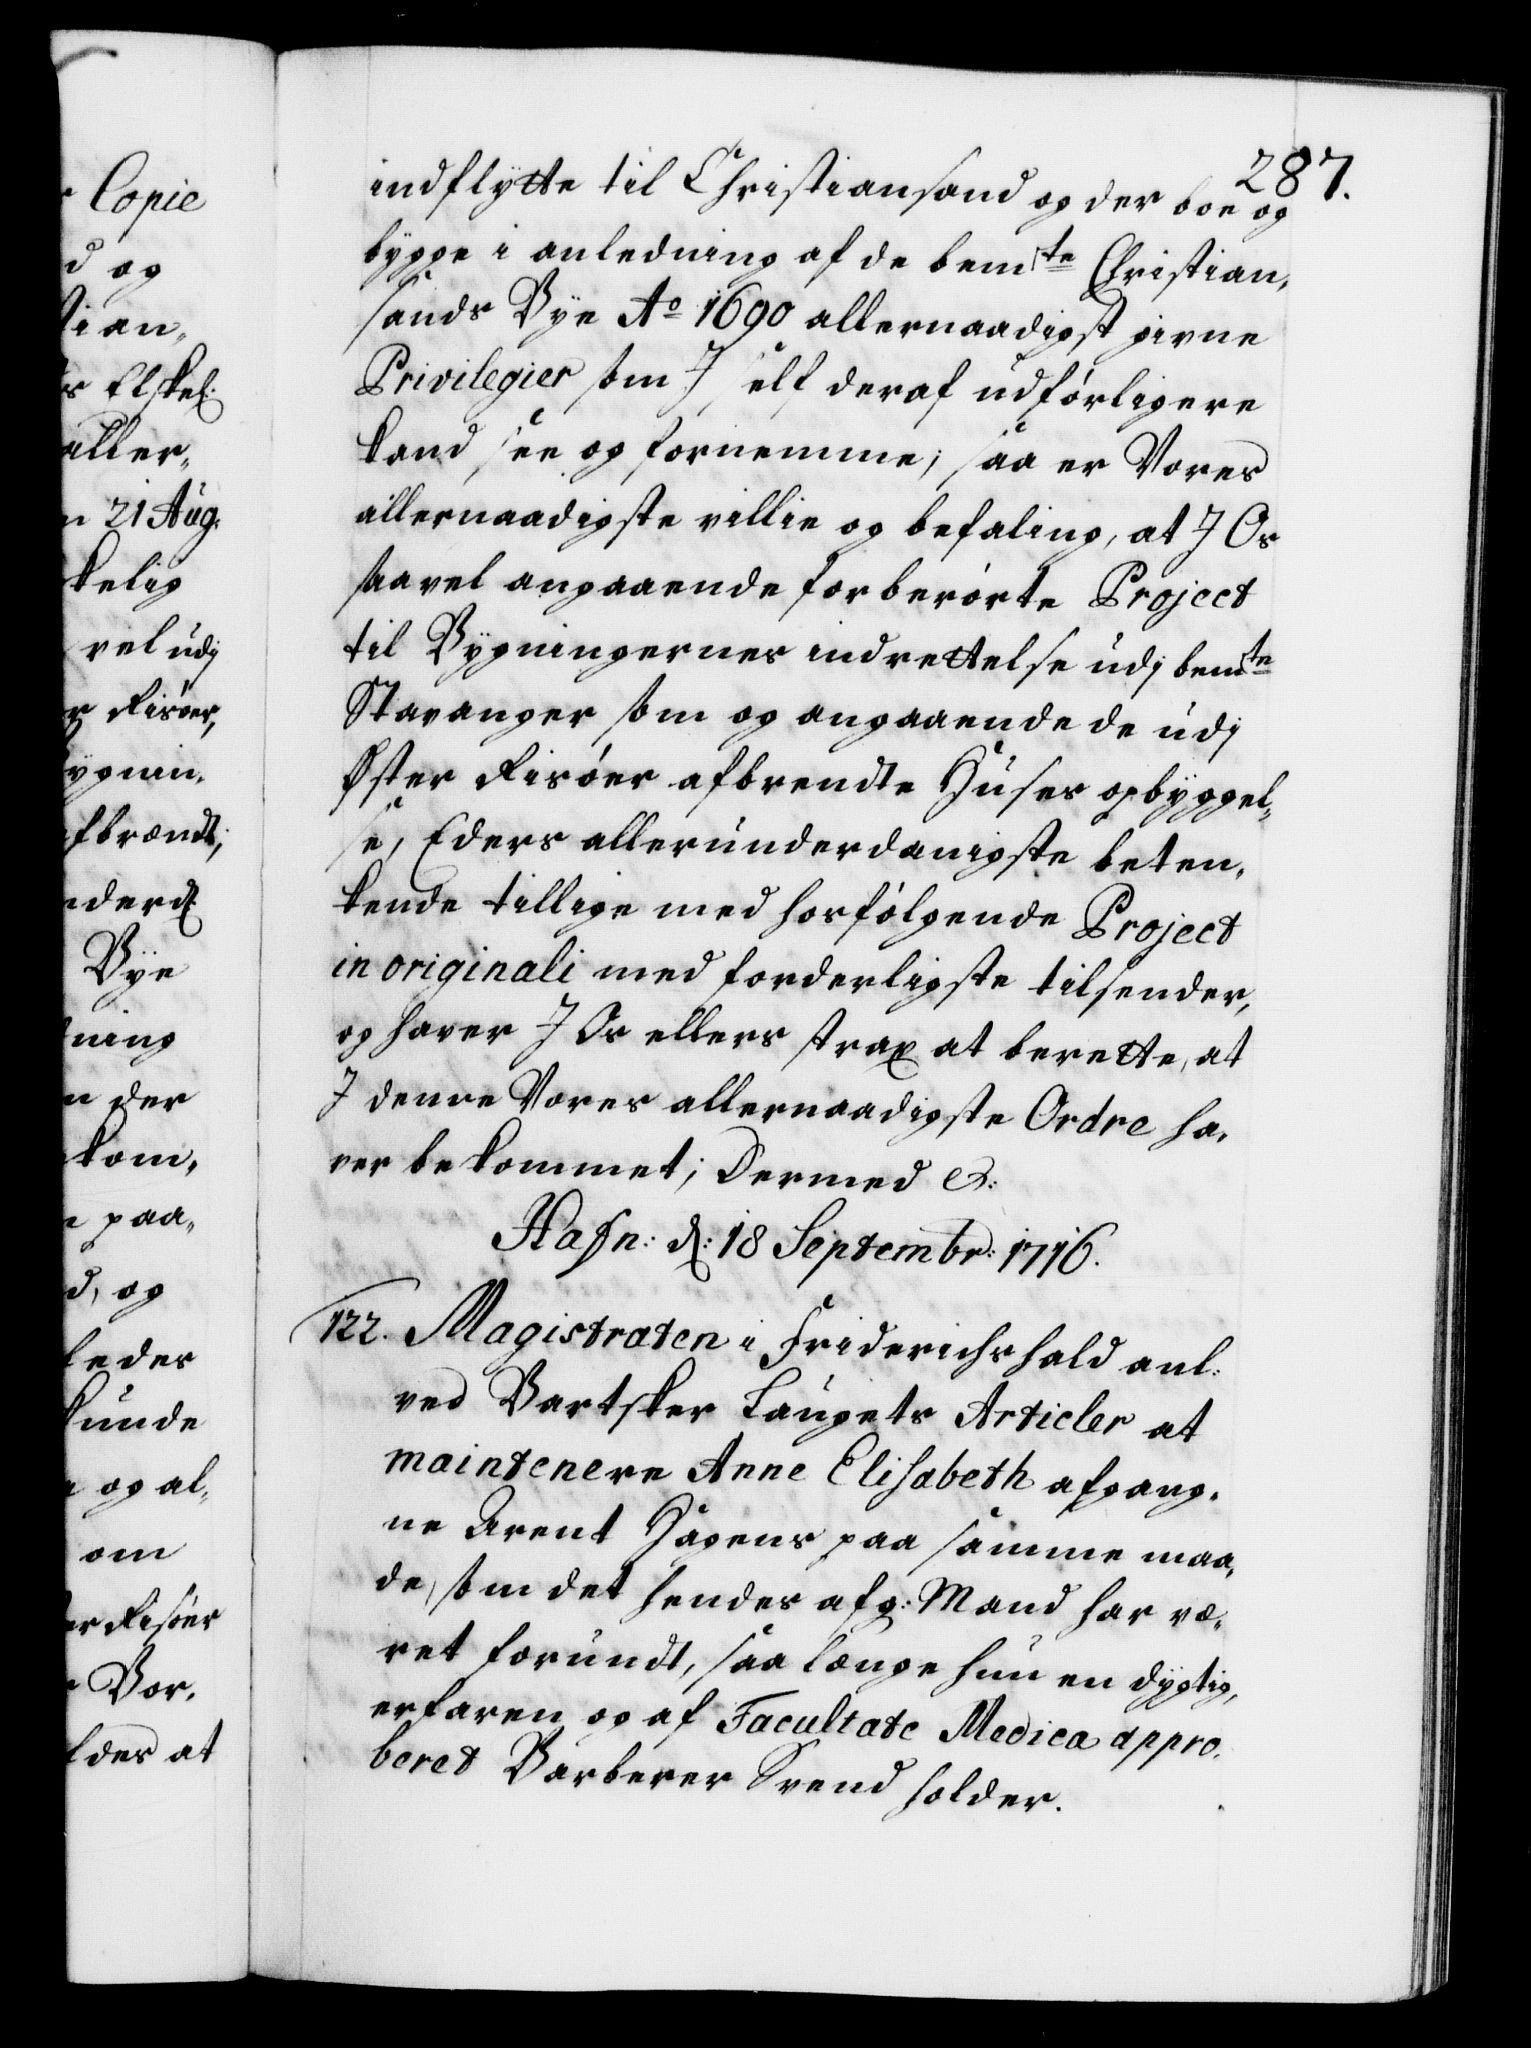 Copie
d og
tian,,
s Elskel:
aller,,
n 21 Aug:
kelig
vel udj
r Risöer,
ygnin,
fbrændt,
nderd:
Bye
ning
n der
kom,
e paa,
d, og
ledes
kunde
e og al,
om
er Risöer
Vor,
ldes at
287.
indflytte til Christiansand og der boe og
bygge i anledning af de bemte Christian,
sands Bye Ao 1690 allernaadigst givne
Privilegier som I self deraf udförligere
kand see og fornemme; saa er Vores
allernaadigste villie og befaling, at I Os
saavel angaaende forberörte Project
til Bygningernes indrettelse udj bemte
Stavanger som og angaaende de udj
Öster Risöer afbrendte Huses opbyggel,,
se, Eders allerunderdanigste beten,
kende tillige med hosfölgende Project
in originali med forderligste tilsender,
og haver I Os ellers strax at berette, at
I denne Vores allernaadigste Ordre ha,
ver bekommet; Dermed &:
Hafn: d: 18 Septembr: 1716.
122. Magistraten i Friderichshald anl:
ved Bartsker Laugets Articler at
maintenere Anne Elisabeth afgang,
ne Arent Hagens paa samme maa,
de, som det hendes afg: Mand har væ,
ret forundt, saa længe hun en dygtig,
erfaren og af Facultate Medica appro,
beret Barberer Svend holder.